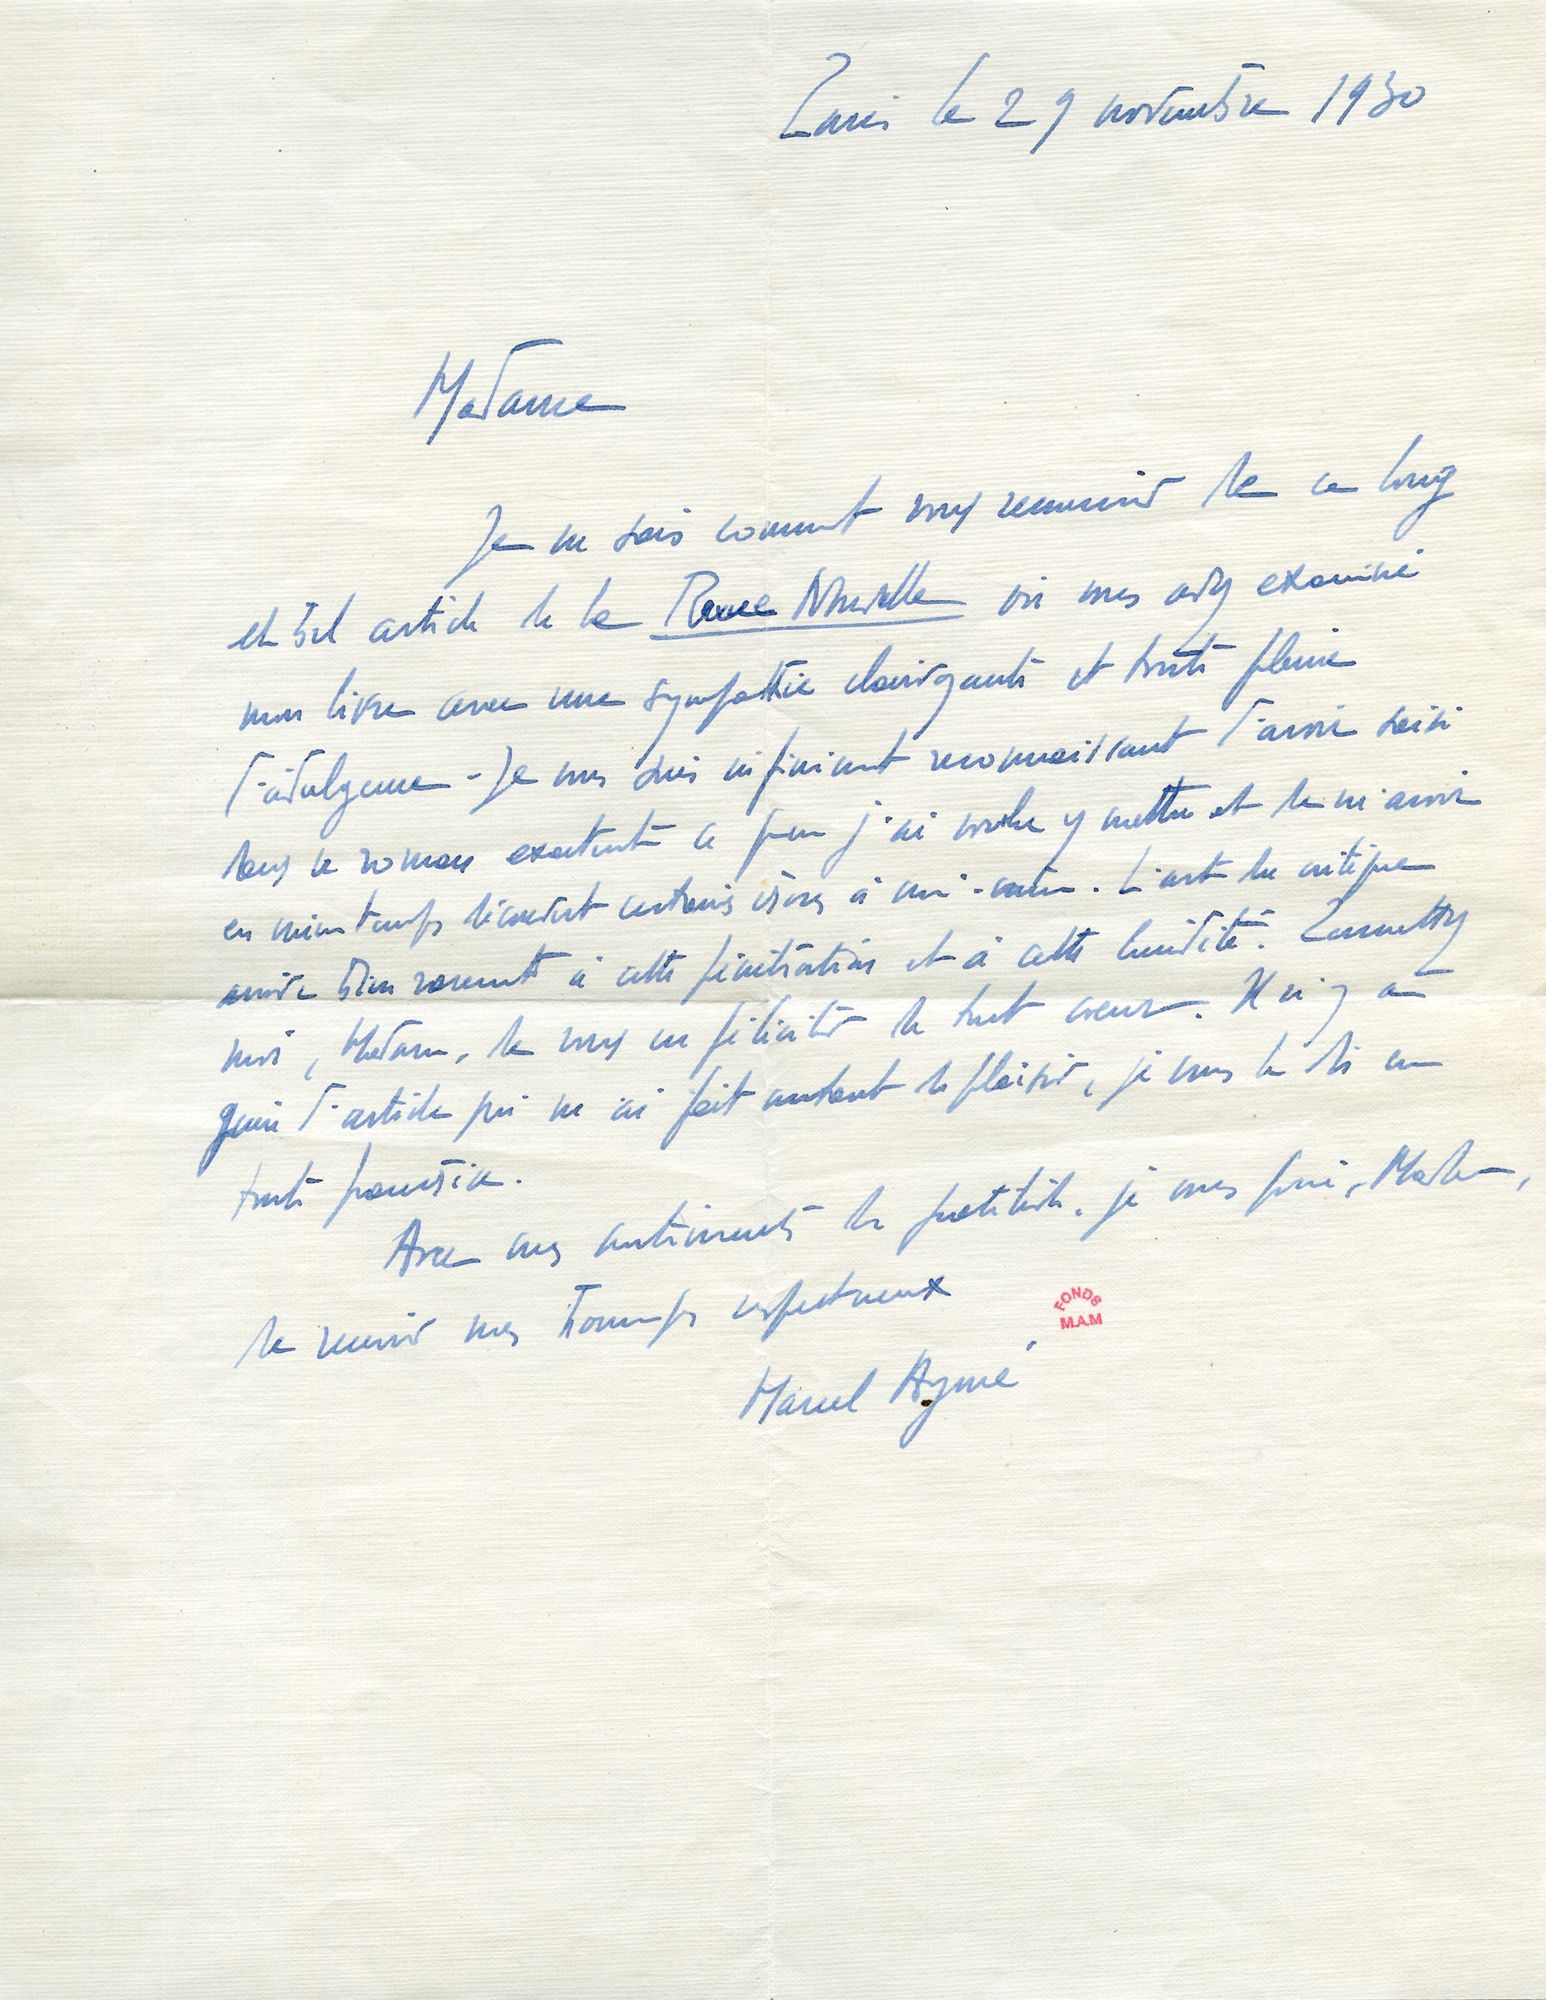 Paris le 29 novembre 1930
Madame
Je ne sais comment vous remercier de ce long
et bel article de la Revue Nouvelle où vous avez examiné
mon livre avec une sympathie clairvoyante et toute pleine
d'indulgence - Je vous suis infiniment reconnaissant d'avoir saisi
dans ce roman exactement ce que j'ai voulu y mettre et de m'avoir
en même temps découvert certaines choses à moi-même. L'art du critique
arrive bien rarement à cette pénétration et à cette lucidité. Permettez
moi, Madame, de vous en féliciter de tout cœur. Il n'y a
guère d'article qui m'ai fait autant de plaisir, je vous le dis en
toute franchise.
Avec mes sentiments de gratitude, je vous prie, Madame,
de recevoir mes hommages respectueux
Marcel Aymé
FONDS
M.A.M